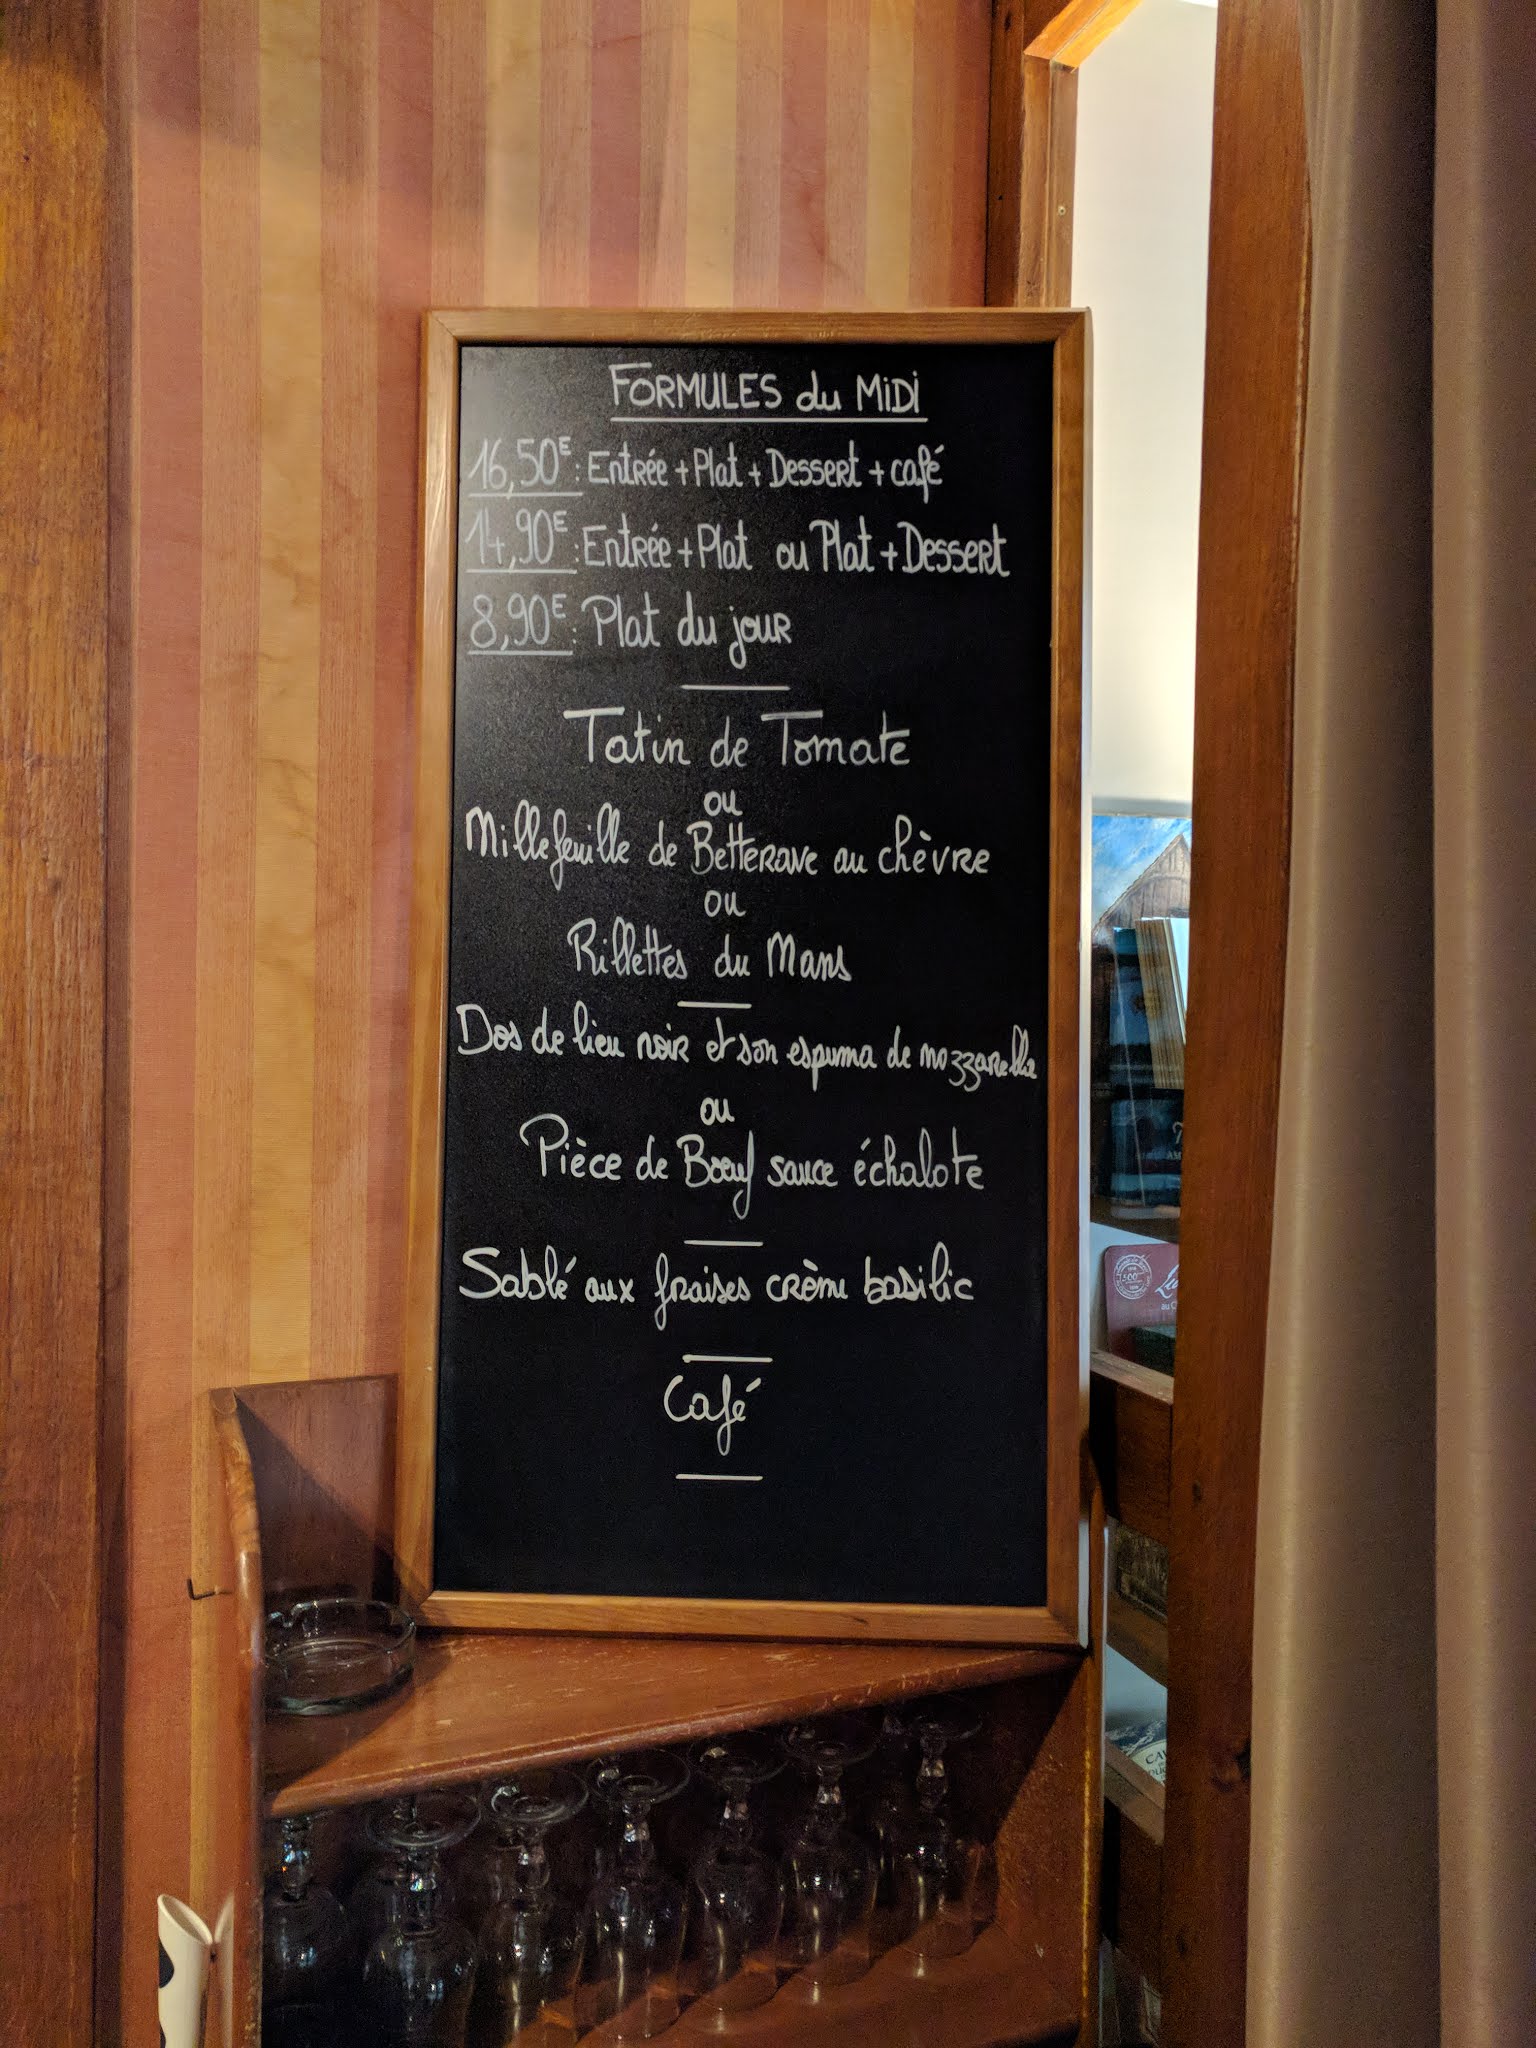 FORMULES du MiDi
16,50E : Entrée + Plat + Dessert + café
14,90E : Entrée + Plat ou Plat + Dessert
8,90E : Plat du jour
Tatin de Tomate
ou
Millefeuille de Betterave au chèvre
ou
Rillettes du Mans
Dos de lieu noir et son espuma de mozzarella
ou
Pièce de Boeuf sauce échalote
Sablé aux fraises crème basilic
Café